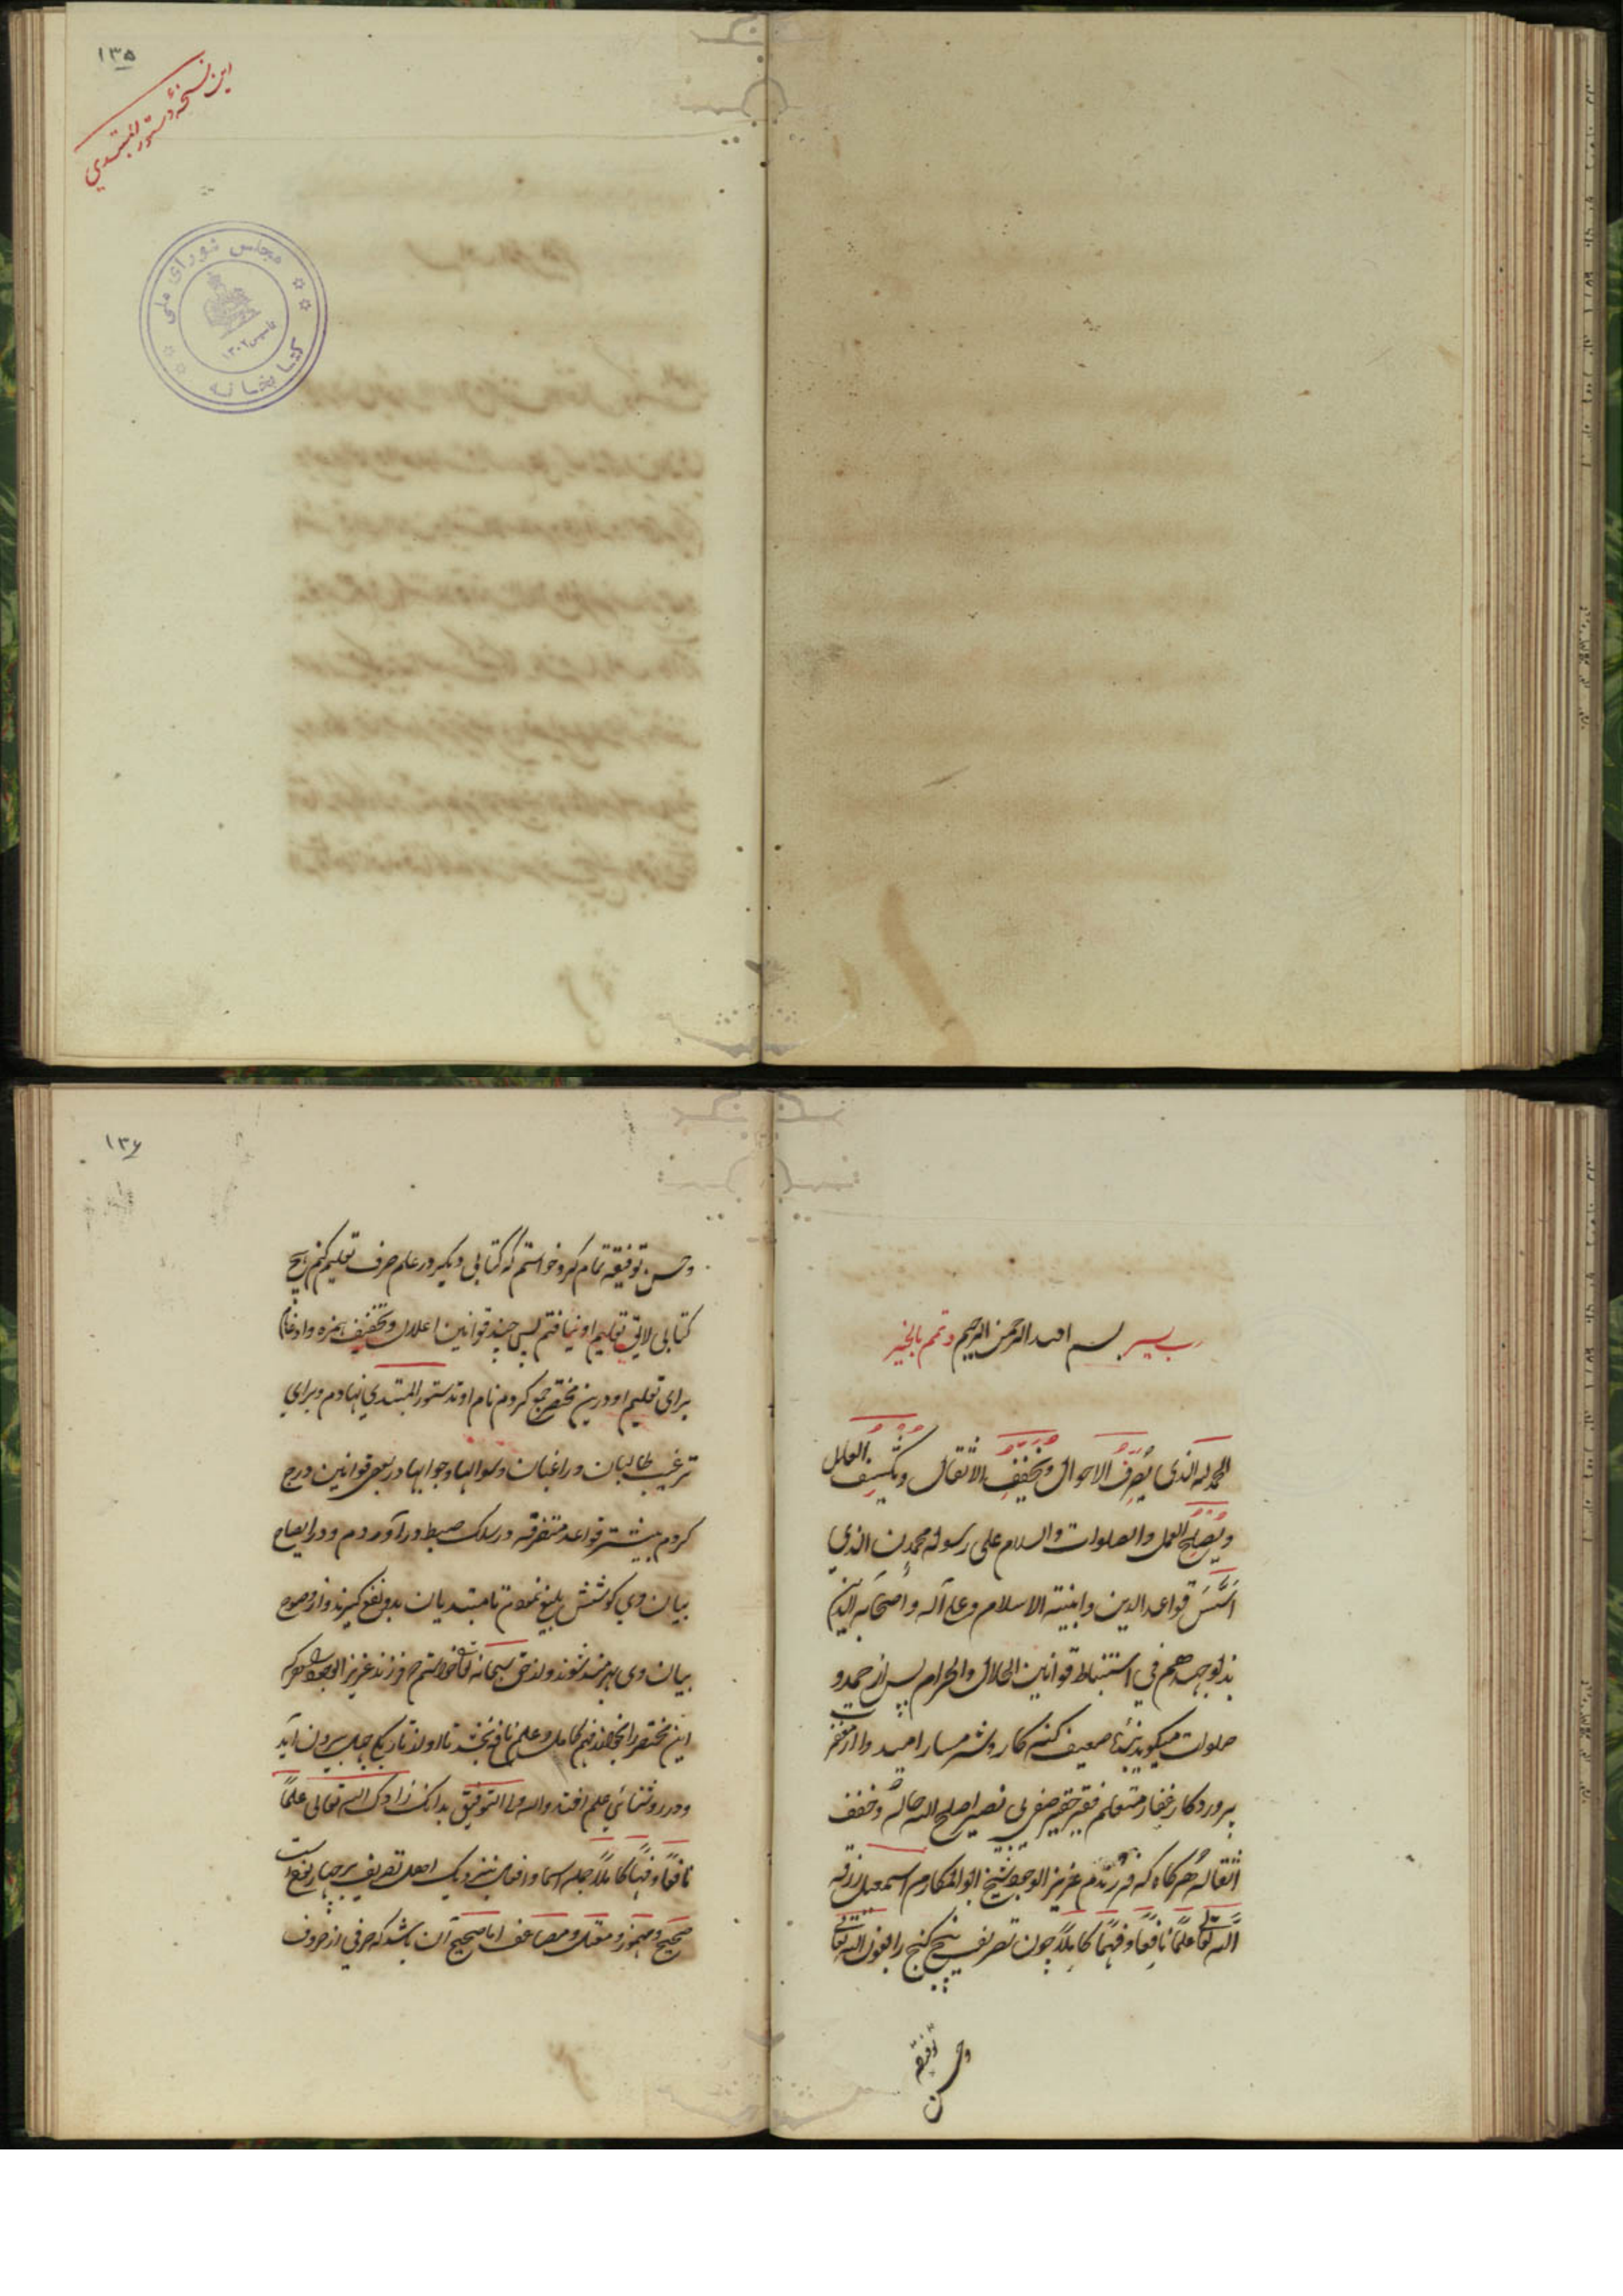 ۱۳۵
این نسخهٔ دستور المبتدی
مجلس شورای ملی
کتابخانه
تاسیس ۱۳۰۲
رب یسر بسم الله الرحمن الرحیم و تمم بالخیر
الحمد لله الذی یُصرِّفُ الاحوال و یُخفِّفُ الاثقال و یکشف العلل
و یُصلِحُ العمل والصلوات والسلام علی رسوله محمدن الذی
اَسَّسَ قواعد الدین وابنیة الاسلام و علی آله و اصحابه الذین
بذلو جهدهم فی استنباط قوانین الحلال والحرام پس از حمد و
صلوات میکوید بندهٔ ضعیف کنه کار و شرمسار امیدوار از مغفرت
پروردکار غفار متعلم فقیر حقیر صفی بن نصیر اصلح الله حاله و خفف
اثقاله هرکاه که فرزندم عزیز الوجود شیخ ابو المکارم اسمعیل رزقه
الله تعالی علمًا نافعًا و فهمًا کاملًا چون تصریف پنج کنج را بعون الله تعالی
و حسن توفیقه
۱۳۶
و حسن توفیقه تمام کرد خواستم که کتابی دیکر در علم صرف تعلیم کنم هیچ
کتابی لایق تعلیم او نیافتم پس چند قوانین اعلال و تخفیف همزه و ادغام
برای تعلیم او درین مختصر جمع کردم نام او دستور المبتدی نهادم و برای
ترغیب طالبان و راغبان و سوالها و جوابها در بعض قوانین درج
کردم بیشتر قواعد متفرقه در سلک ضبط در آوردم و در ایضاح
بیان وی کوشش بلیغ نمودم تا مبتدیان بدو نفع کیرند و از وضوح
بیان وی بهرمند شوند و از حق سبحانه تعالی خواستم فرزند عزیز الوجود هر که
این مختصر را بخواند فهم کامل و علم نافع بخشد تا او از تاریکی جهل بیرون آید
و در روشنائی علم افتد والله ولی التوفیق بدانک زادک الله تعالی علمًا
نافعًا و فهمًا کاملًا جمله اسما و افعال بنزدیک اهل تصریف بر چهار نوع است
صحیح و مهموز و معتل و مضاعف اما صحیح آن باشد که حرفی از حروف